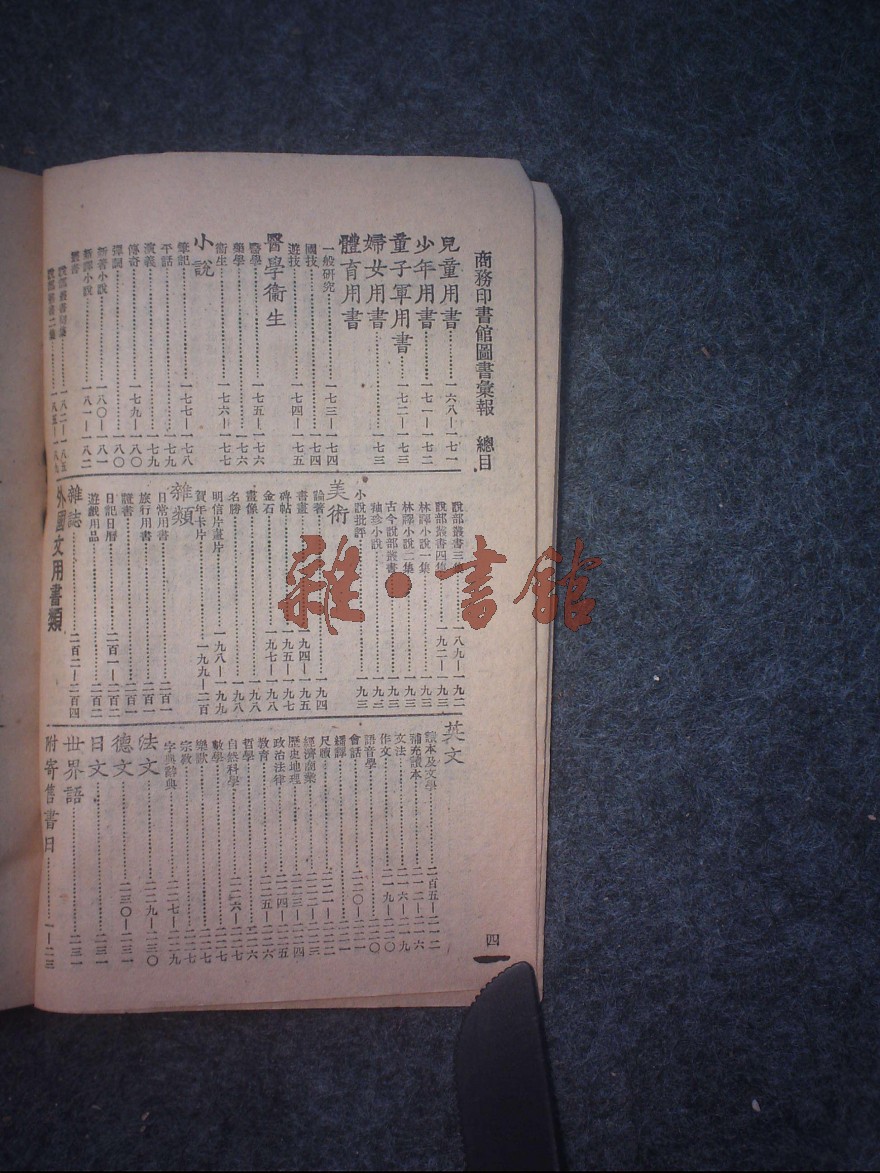 商務印書館圖書彙報　總目
兒童用書一六八—一七一
少年用書一七一—一七二
童子軍用書一七二—一七三
婦女用書一七三
體育用書
一般研究一七三—一七四
國技一七四
遊技一七四—一七五
醫學衞生
醫學一七五—一七六
藥學一七六
衞生一七六—一七七
小說
筆記一七七—一七八
平話一七九
演義一七九
傳奇一七九—一八〇
彈詞一八〇
新著小說一八〇—一八二
新譯小說一八一—一八二
叢書
說部叢書初集一八二—一八五
說部叢書二集
說部叢書三集一八九—一九二
說部叢書四集一九二—一九三
林譯小說一集一九三
林譯小說二集一九三
古今說部叢書一九三
袖珍小說一九三
小說批評一九三
美術
論著一九四
書畫一九四—一九五
碑帖一九五—一九七
金石一九七—一九八
畫像一九八
名勝一九八
明信片畫片一九八—一九九
賀年卡片一九九—二百
雜類
日常用書二百一
旅行用書二百一
證書二百一
日記日曆二百一—二百二
遊戲用品二百二
雜誌二百二—二百四
外國文用書類
英文
讀本及文學二百五—二一二
補充讀本二一二—二一六
文法二一六—二一九
作文二一九—二二〇
語音學二二〇
會話二二〇—二二一
繙譯二二一
尺牘二二一—二二二
經濟商業二二二—二二三
歷史地理二二三—二二四
政治法律二二四—二二五
教育二二五—二二六
哲學二二六
自然科學二二六—二二七
數學二二七
樂歌二二七
宗教二二七
字典辭典二二七—二二九
法文二二九—二三〇
德文二三〇—二三一
日文二三一
世界語二三一
附寄售書目一—二三
四
雜·書館